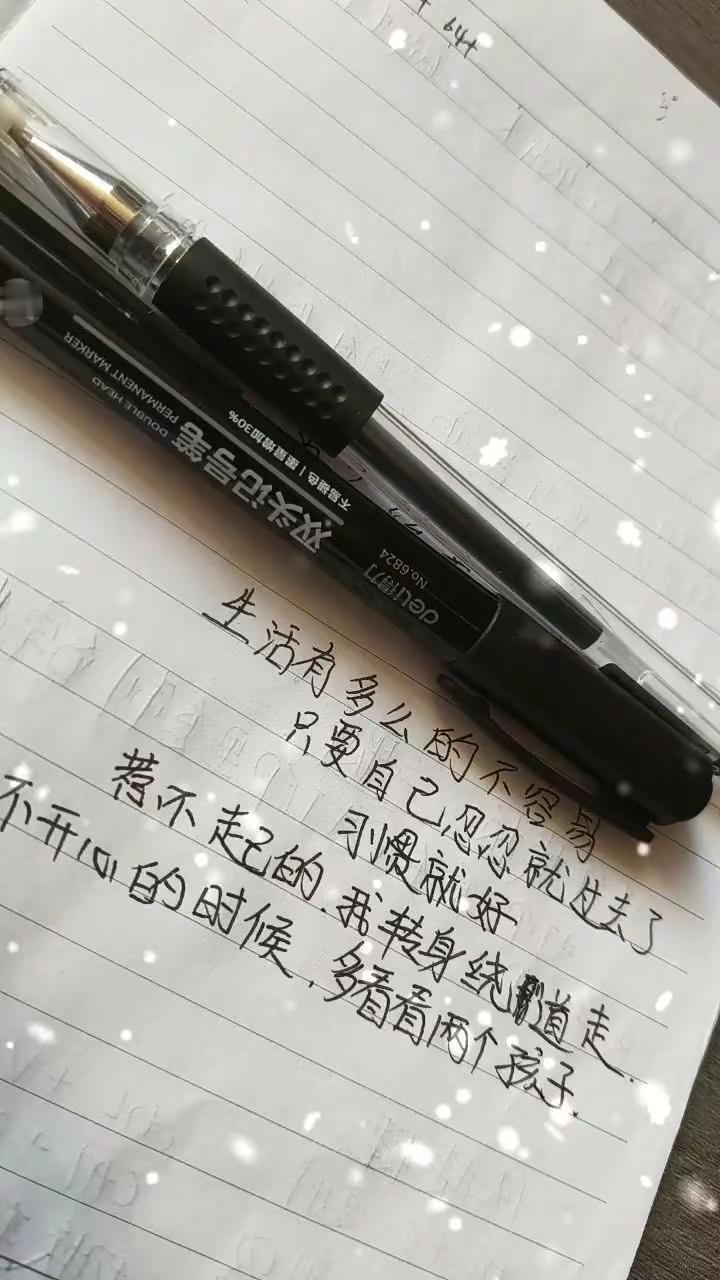 64+
双头记号笔
DOUBLE HEAD
PERMANENT MARKER
不易褪色 | 墨量增加30%
deli得力
No.6824
生活有多么的不容易
只要自己忍忍就过去了
习惯就好
惹不起的.我转身绕道走.
不开心的时候.多看看两个孩子.